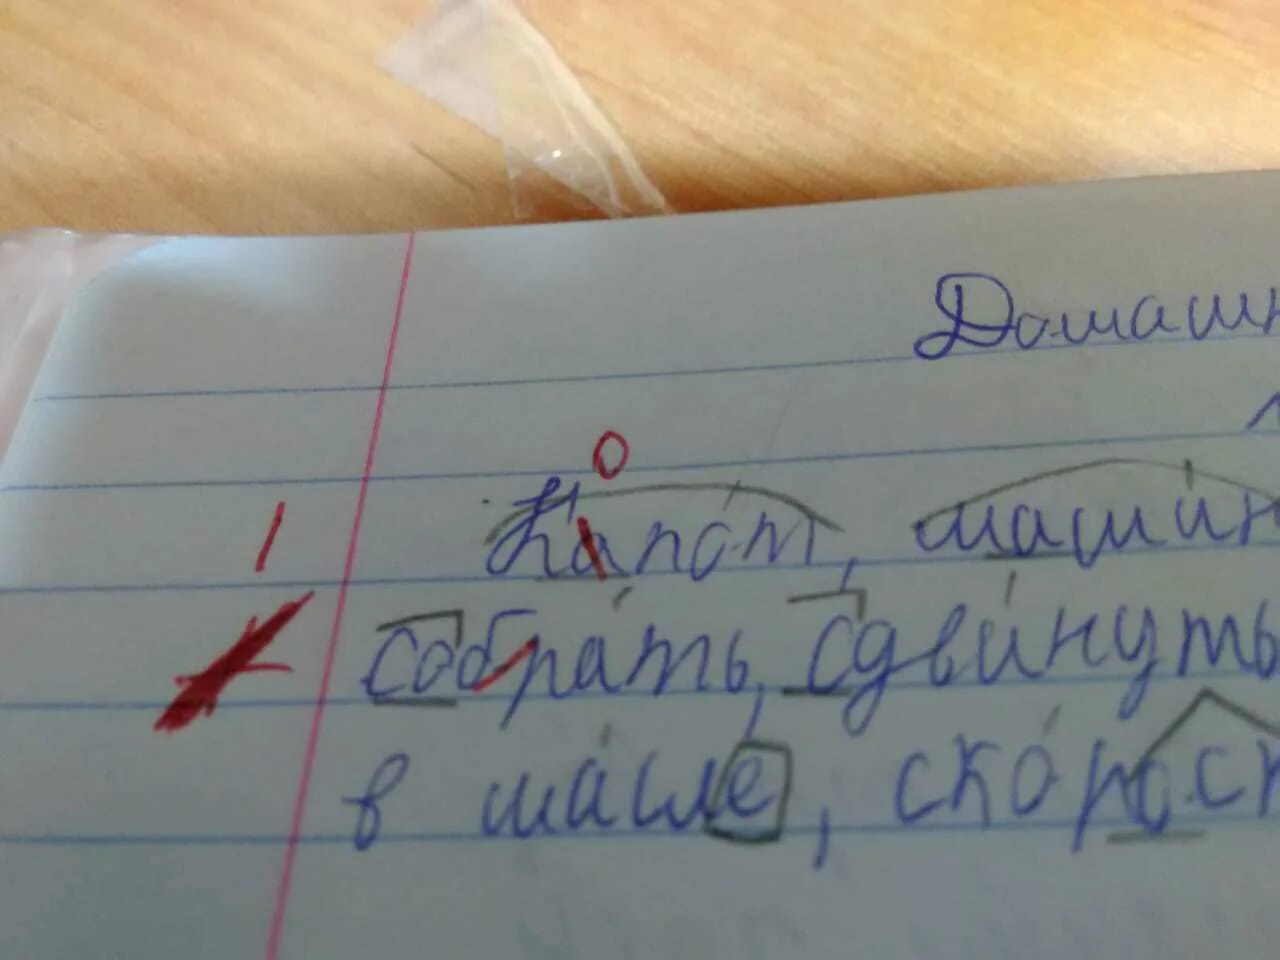 Домашн
о
| Капот, машин
собрать, сдвинуть
в шале, скорост